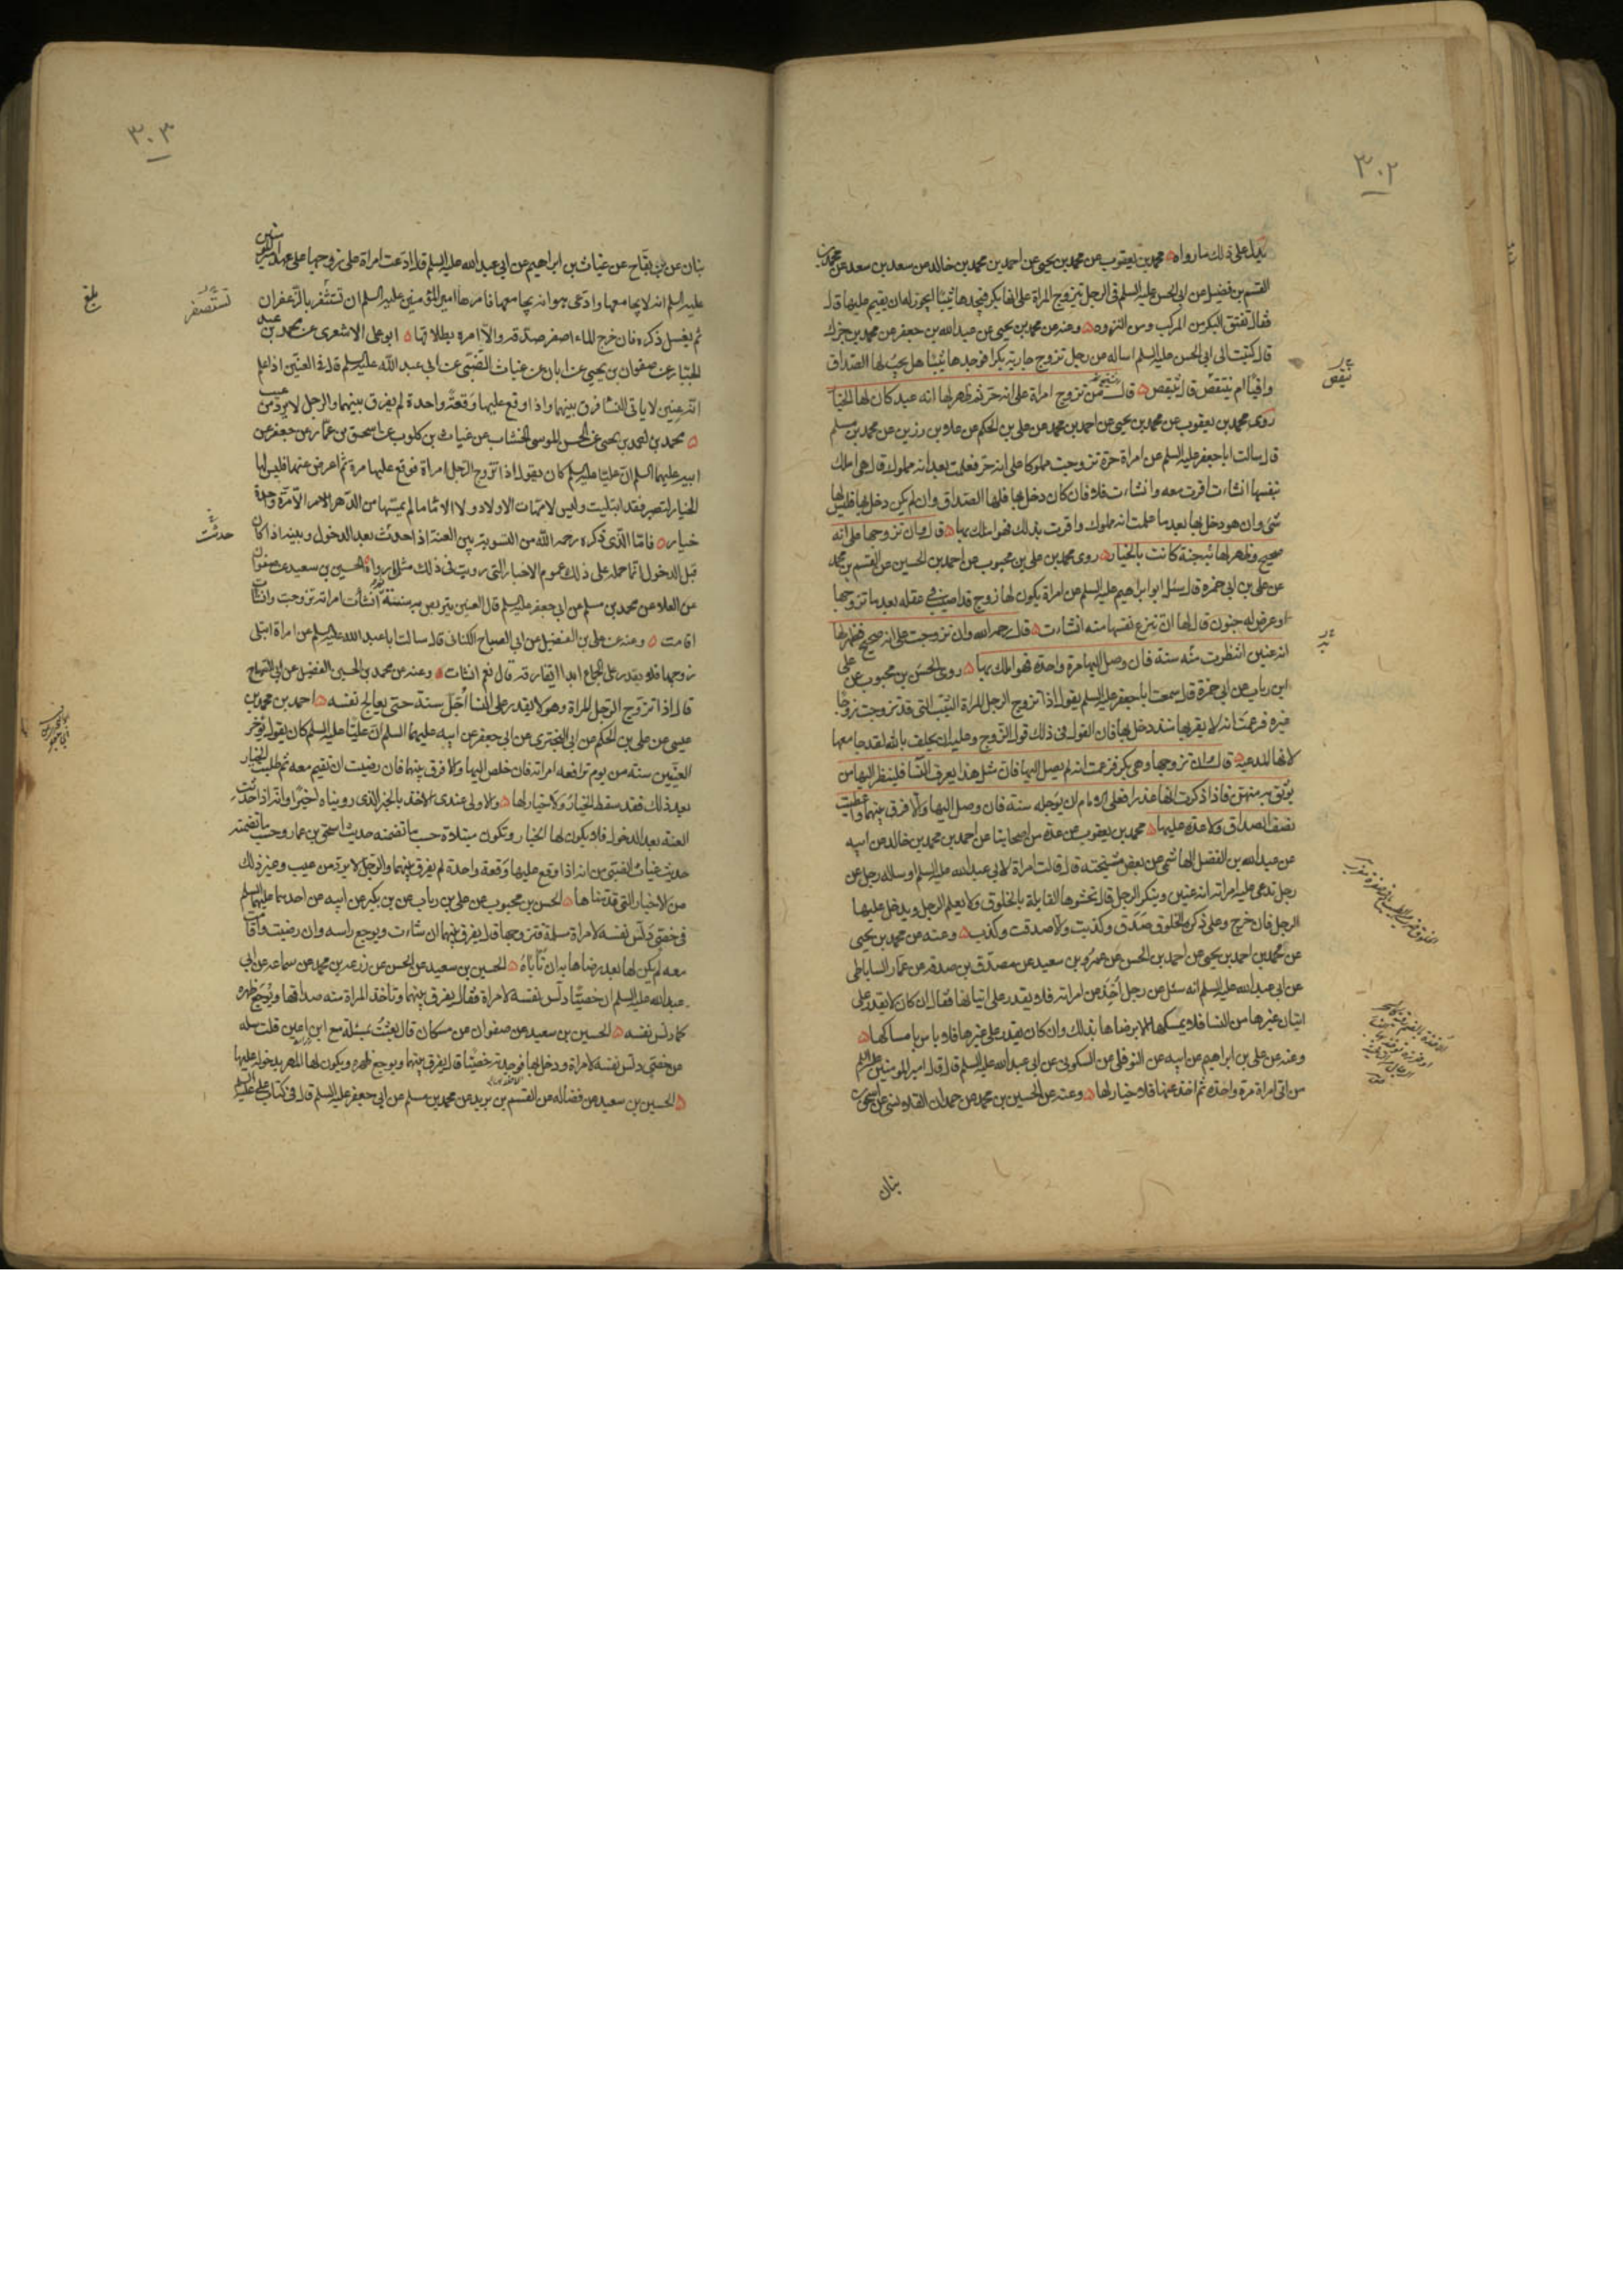 ٣٠٢
يدل على ذلك ما رواه محمد بن يعقوب عن محمد بن يحيى عن احمد بن محمد بن خالد عن سعد بن سعد عن محمد بن
القسم بن فضيل عن ابى الحسن عليه السلم فى الرجل يتزوج المراة على انها بكر فيجدها ثيبا ايجوز له ان يقيم عليها قال
فقال تفتق البكر من المركب ومن النزوه وعنه عن محمد بن يحيى عن عبد الله بن جعفر عن محمد بن جزك
قال كتبت الى ابى الحسن عليه السلم اساله عن رجل تزوج جاريه بكرا فوجدها ثيبا هل يجب لها الصداق
وافيا ام ينتقص قال ينتقص قال ومن تزوج امراة على انه حر فظهر لها انه عبد كان لها الخيار
روى محمد بن يعقوب عن محمد بن يحيى عن احمد بن محمد عن على بن الحكم عن علا بن رزين عن محمد بن مسلم
قال سالت ابا جعفر عليه السلم عن امراة حرة تزوجت مملوكا على انه حر فعلمت بعد انه مملوك قال هى املك
بنفسها ان شاءت اقرت معه وان شاءت فلا فان كان دخل بها فلها الصداق وان لم يكن دخل بها فليس لها
شى وان هو دخل بها بعد ما علمت انه مملوك واقرت بذلك فهو املك بها قال وان تزوجها على انه
صحيح فظهر لها به جنة كانت بالخيار روى محمد بن على بن محبوب عن احمد بن الحسين عن القسم بن محمد
عن على بن ابى حمزة قال سئل ابو ابراهيم عليه السلم عن امراة يكون لها زوج قد اصيب فى عقله بعد ما تزوجها
او عرض له جنون قال لها ان تنزع نفسها منه ان شاءت قال رحمه الله وان تزوجت على انه صحيح فظهر لها
انه عنين انتظرت به سنة فان وصل اليها مرة واحدة فهو املك بها روى الحسن بن محبوب عن على
ابن رياب عن ابى حمزة قال سمعت ابا جعفر عليه السلم يقول اذا تزوج الرجل المراة الثيب التى قد تزوجت زوجا
غيره فزعمت انه لا يقربها منذ دخل بها فان القول فى ذلك قول الزوج وعليه ان يحلف بالله لقد جامعها
لانها المدعيه قال وان تزوجها وهى بكر فزعمت انه لم يصل اليها فان مثل هذا يعرف النسا فلينظر اليها من
يوثق به منهن فاذا ذكرت انها عذرا فعلى الامام ان يوجله سنة فان وصل اليها والا فرق بينهما واعطيت
نصف الصداق ولا عدة عليها محمد بن يعقوب عن عدة من اصحابنا عن احمد بن محمد بن خالد عن ابيه
عن عبد الله بن الفضل الهاشمى عن بعض مشيخته قال قالت امراة لابى عبد الله عليه السلم او ساله رجل عن
رجل تدعى عليه امراته انه عنين وينكر الرجل قال تحشوها القابلة بالخلوق ولا يعلم الرجل ويدخل عليها
الرجل فان خرج وعلى ذكره الخلوق صدق وكذبت والا صدقت وكذب وعنه عن محمد بن يحيى
عن محمد بن احمد بن يحيى عن احمد بن الحسن عن عمرو بن سعيد عن مصدق بن صدقه عن عمار الساباطى
عن ابى عبد الله عليه السلم انه سئل عن رجل اخذ عن امراته فلا يقدر على اتيانها فقال ان كان لا يقدر على
اتيان غيرها من النسا فلا يمسكها الا برضاها بذلك وان كان يقدر على غيرها فلا باس بامساكها
وعنه عن على بن ابراهيم عن ابيه عن النوفلى عن السكونى عن ابى عبد الله عليه السلم قال قال امير المومنين عليه السلم
من اتى امراة مرة واحدة ثم اخذ عنها فلا خيار لها وعنه عن الحسين بن محمد عن حمدان القلانسى عن اسحق بن
بنان
ينقص
٣٠٣
بنان عن بن بقاح عن غياث بن ابراهيم عن ابى عبد الله عليه السلم قال ادعت امراة على زوجها على عهد امير المومنين
عليه السلم انه لا يجامعها وادعى هو انه يجامعها فامرها امير المؤمنين عليه السلم ان تستثفر بالزعفران
ثم يغسل ذكره فان خرج الماء اصفر صدقه والا امره بطلاقها ابو على الاشعرى عن محمد بن عبد
الجبار عن صفوان بن يحيى عن ابان عن غياث الضبى عن ابى عبد الله عليه السلم قال فى العنين اذا علم
انه عنين لا ياتى النسا فرق بينهما واذا وقع عليها وقعة واحدة لم يفرق بينهما والرجل لا يرد من عيب
محمد بن احمد بن يحيى عن الحسن الموسى الخشاب عن غياث بن كلوب عن اسحق بن عمار عن جعفر عن
ابيه عليهما السلم ان عليا عليه السلم كان يقول اذا تزوج الرجل امراة فوقع عليها مرة ثم اعرض عنها فليس لها
الخيار لتصبر فقد ابتليت وليس لامهات الاولاد ولا الاما ما لم يمسها من الدهر الا مرة واحدة
خيار فاما الذى ذكره رحمه الله من التسويه بين العنة اذا حدثت بعد الدخول وبينه اذا كان
قبل الدخول انما حمله على ذلك عموم الاخبار التى رويت فى ذلك مثل ما رواه الحسين بن سعيد عن صفوان
عن العلا عن محمد بن مسلم عن ابى جعفر عليه السلم قال العنين يتربص به سنة ثم ان شات امراته تزوجت وان شات
اقامت وعنه عن على بن الفضيل عن ابى الصباح الكنانى قال سالت ابا عبد الله عليه السلم عن امراة ابتلى
زوجها فلا يقدر على الجماع ابدا اتفارقه قال نعم ان شات وعنه عن محمد بن الحسين الفضيل عن ابى الصباح
قال اذا تزوج الرجل المراة وهو لا يقدر على النسا اجل سنة حتى يعالج نفسه احمد بن محمد بن
عيسى عن على بن الحكم عن ابى البخترى عن ابى جعفر عن ابيه عليهما السلم ان عليا عليه السلم كان يقول يؤخر
العنين سنة من يوم ترافعه امراته فان خلص اليها والا فرق بينهما فان رضيت ان تقيم معه ثم طلبت الخيار
بعد ذلك فقد سقط الخيار ولا خيار لها والاولى عندى الاخذ بالخبر الذى رويناه اخيرا وانه اذا حدثت
العنة بعد الدخول فلا يكون لها الخيار وتكون مبتلاة حسب ما تضمنه حديث اسحق بن عمار وحسب ما تضمنه
حديث غياث الضبى من انه اذا وقع عليها وقعة واحدة لم يفرق بينهما والرجل لا يرد من عيب وغير ذلك
من الاخبار التى قدمناها الحسن بن محبوب عن على بن رياب عن بن بكير عن ابيه عن احدهما عليهما السلم
فى خصى دلس نفسه لامراة مسلمة فتزوجها قال يفرق بينهما ان شاءت ويوجع راسه وان رضيت واقامت
معه لم يكن لها بعد رضاها به ان تاباه الحسين بن سعيد عن الحسن عن زرعه بن محمد عن سماعه عن ابى
عبد الله عليه السلم ان خصيا دلس نفسه لامراة فقال يفرق بينهما وتاخذ المراة منه صداقها ويوجع ظهره
كما دلس نفسه الحسين بن سعيد عن صفوان عن مسكان قال بعثت بمسئلة مع ابن اعين قلت سله
عن خصى دلس نفسه لامراة ودخل بها فوجدته خصيا قال يفرق بينهما ويوجع ظهره ويكون لها المهر بدخوله عليها
الحسين بن سعيد عن فضاله عن القسم بن بريد عن محمد بن مسلم عن ابى جعفر عليه السلم قال فى كتاب على عليه السلم
بلغ
حدثت